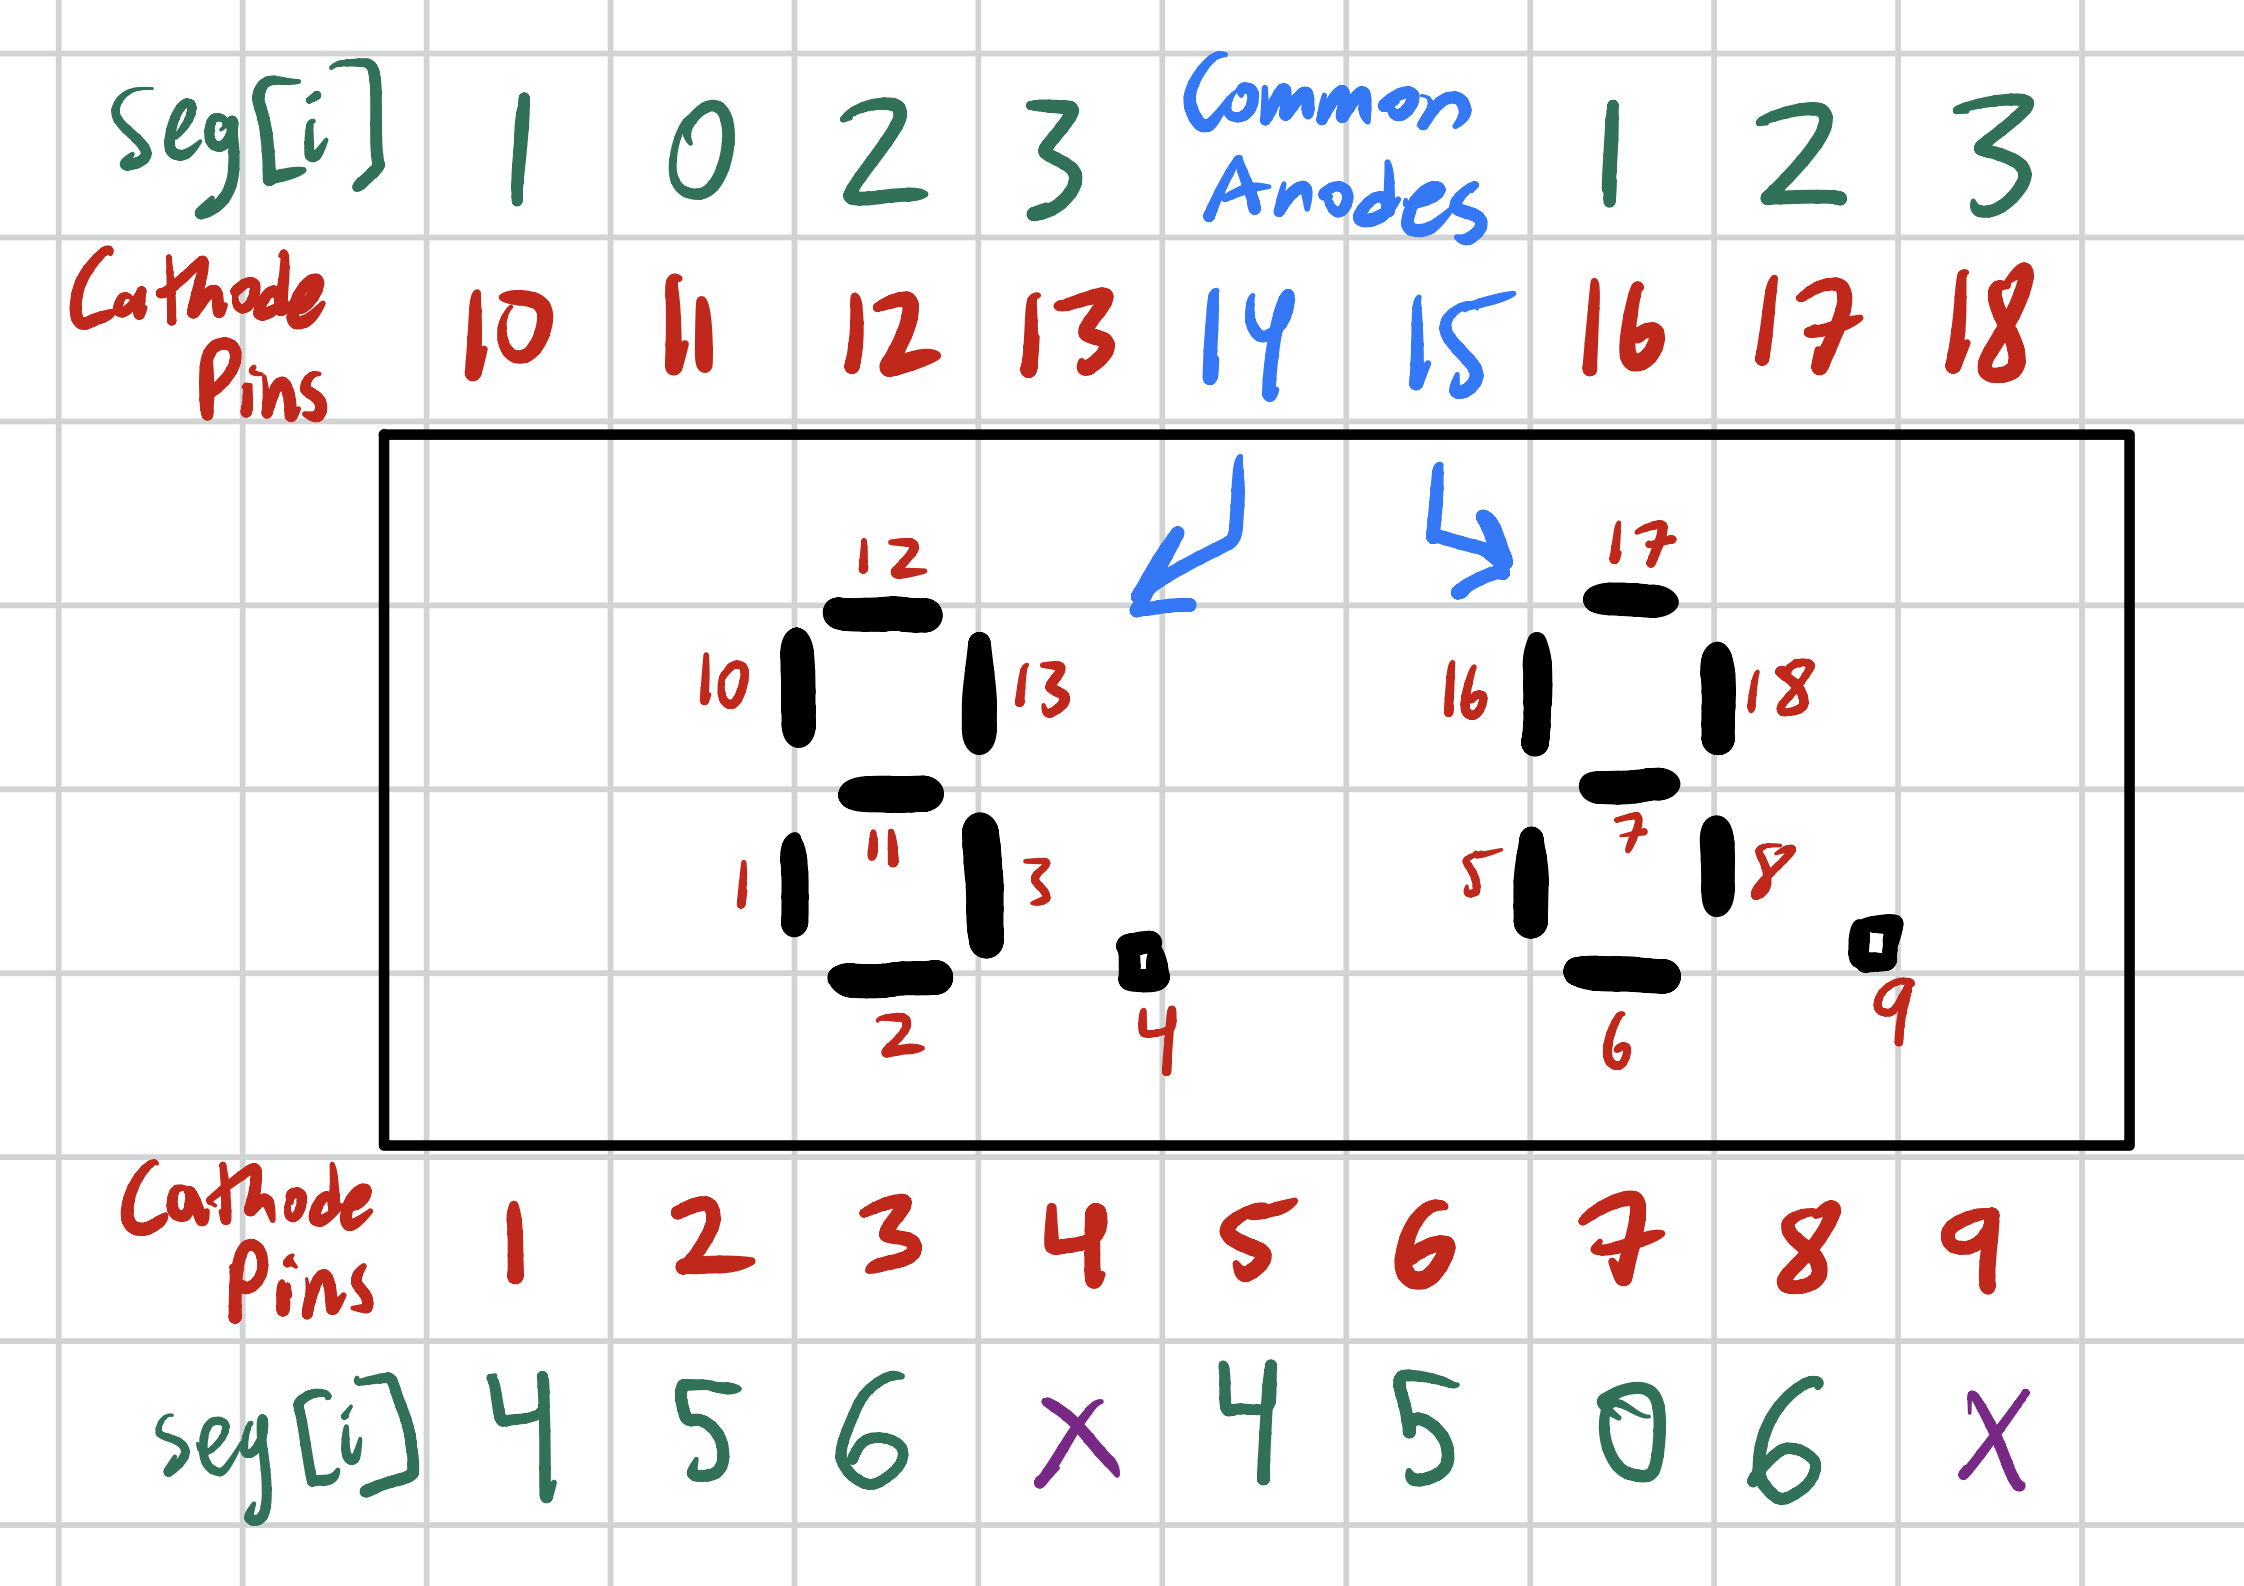 seg[i] 1 0 2 3 Common Anodes 1 2 3
Cathode Pins 10 11 12 13 14 15 16 17 18
12 17
10 13 16 18
11 7
1 3 5 8
2 4 6 9
Cathode Pins 1 2 3 4 5 6 7 8 9
seg[i] 4 5 6 X 4 5 0 6 X